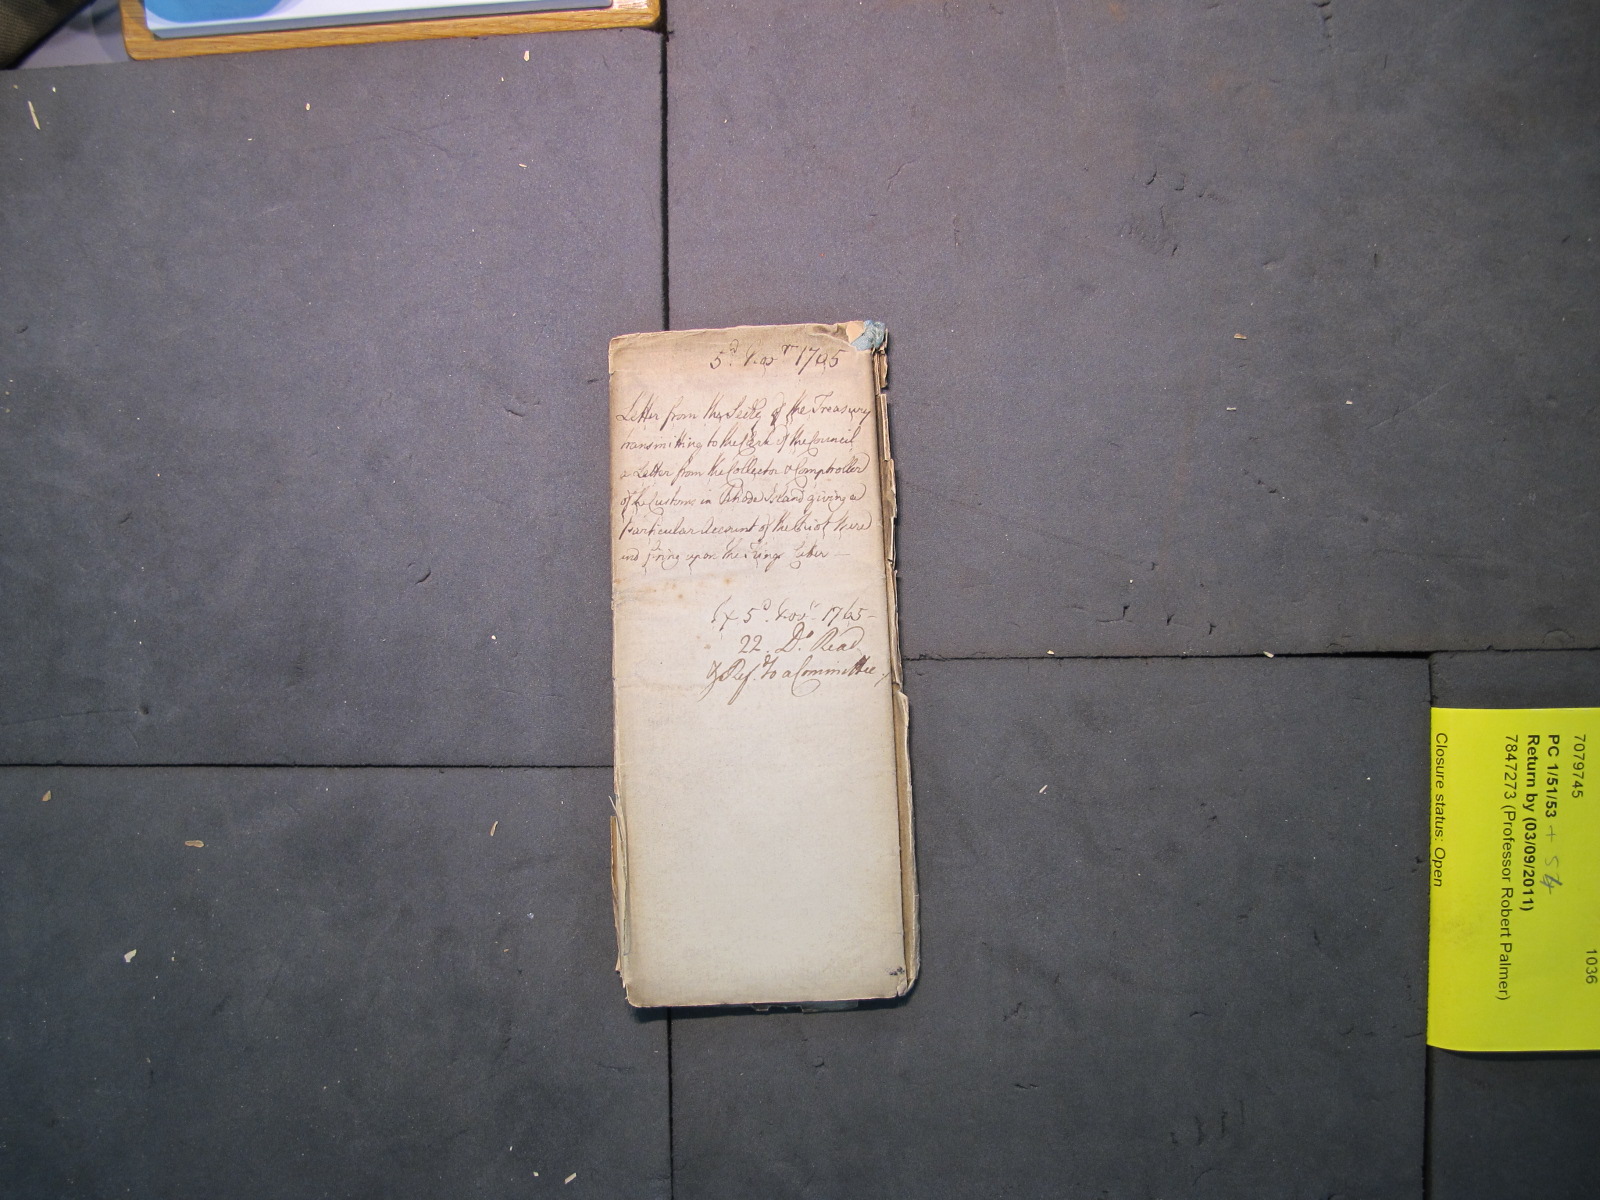 5.d Nov.r 1765
Letter from the Secry of the Treasury
transmitting to the Clerk of the Council
a Letter from the Collector & Comptroller
of the Customs in Rhode Island giving a
Particular Account of the Riot there
and firing upon the Kings Cutter —
5.d Nov.r 1765 -
22. D.o Read
& Ref.d to a Committee
7079745
1036
PC 1/51/53 + 54
Return by (03/09/2011)
7847273 (Professor Robert Palmer)
Closure status: Open